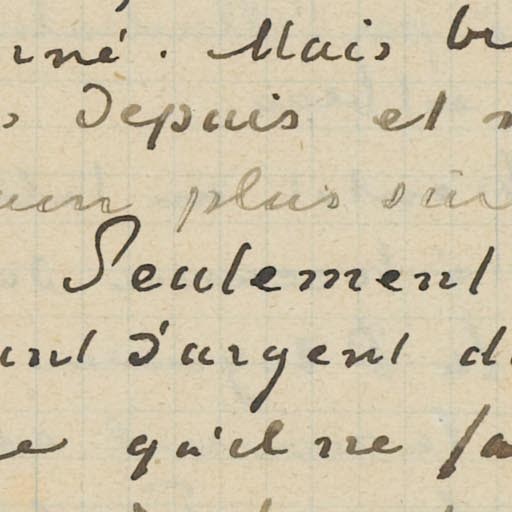 rné. Mais
depuis et
plus sur
Seulement
ant d'argent d
e qu'il ne fa